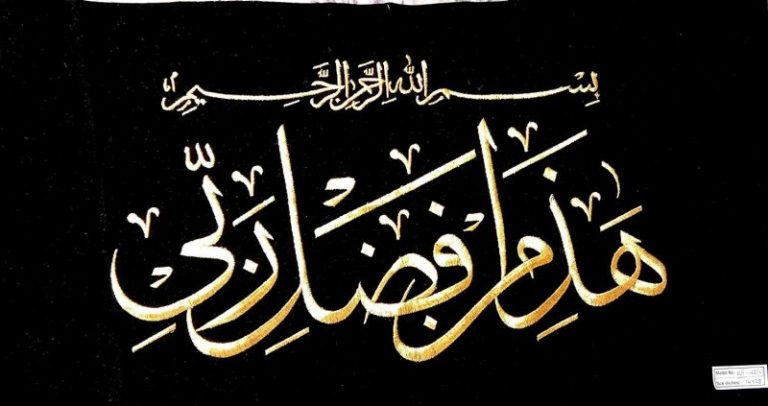 بِسْمِ اللهِ الرَّحْمٰنِ الرَّحِيمِ
هَذَا مِنْ فَضْلِ رَبِّي
Model No.
Size (Inches)